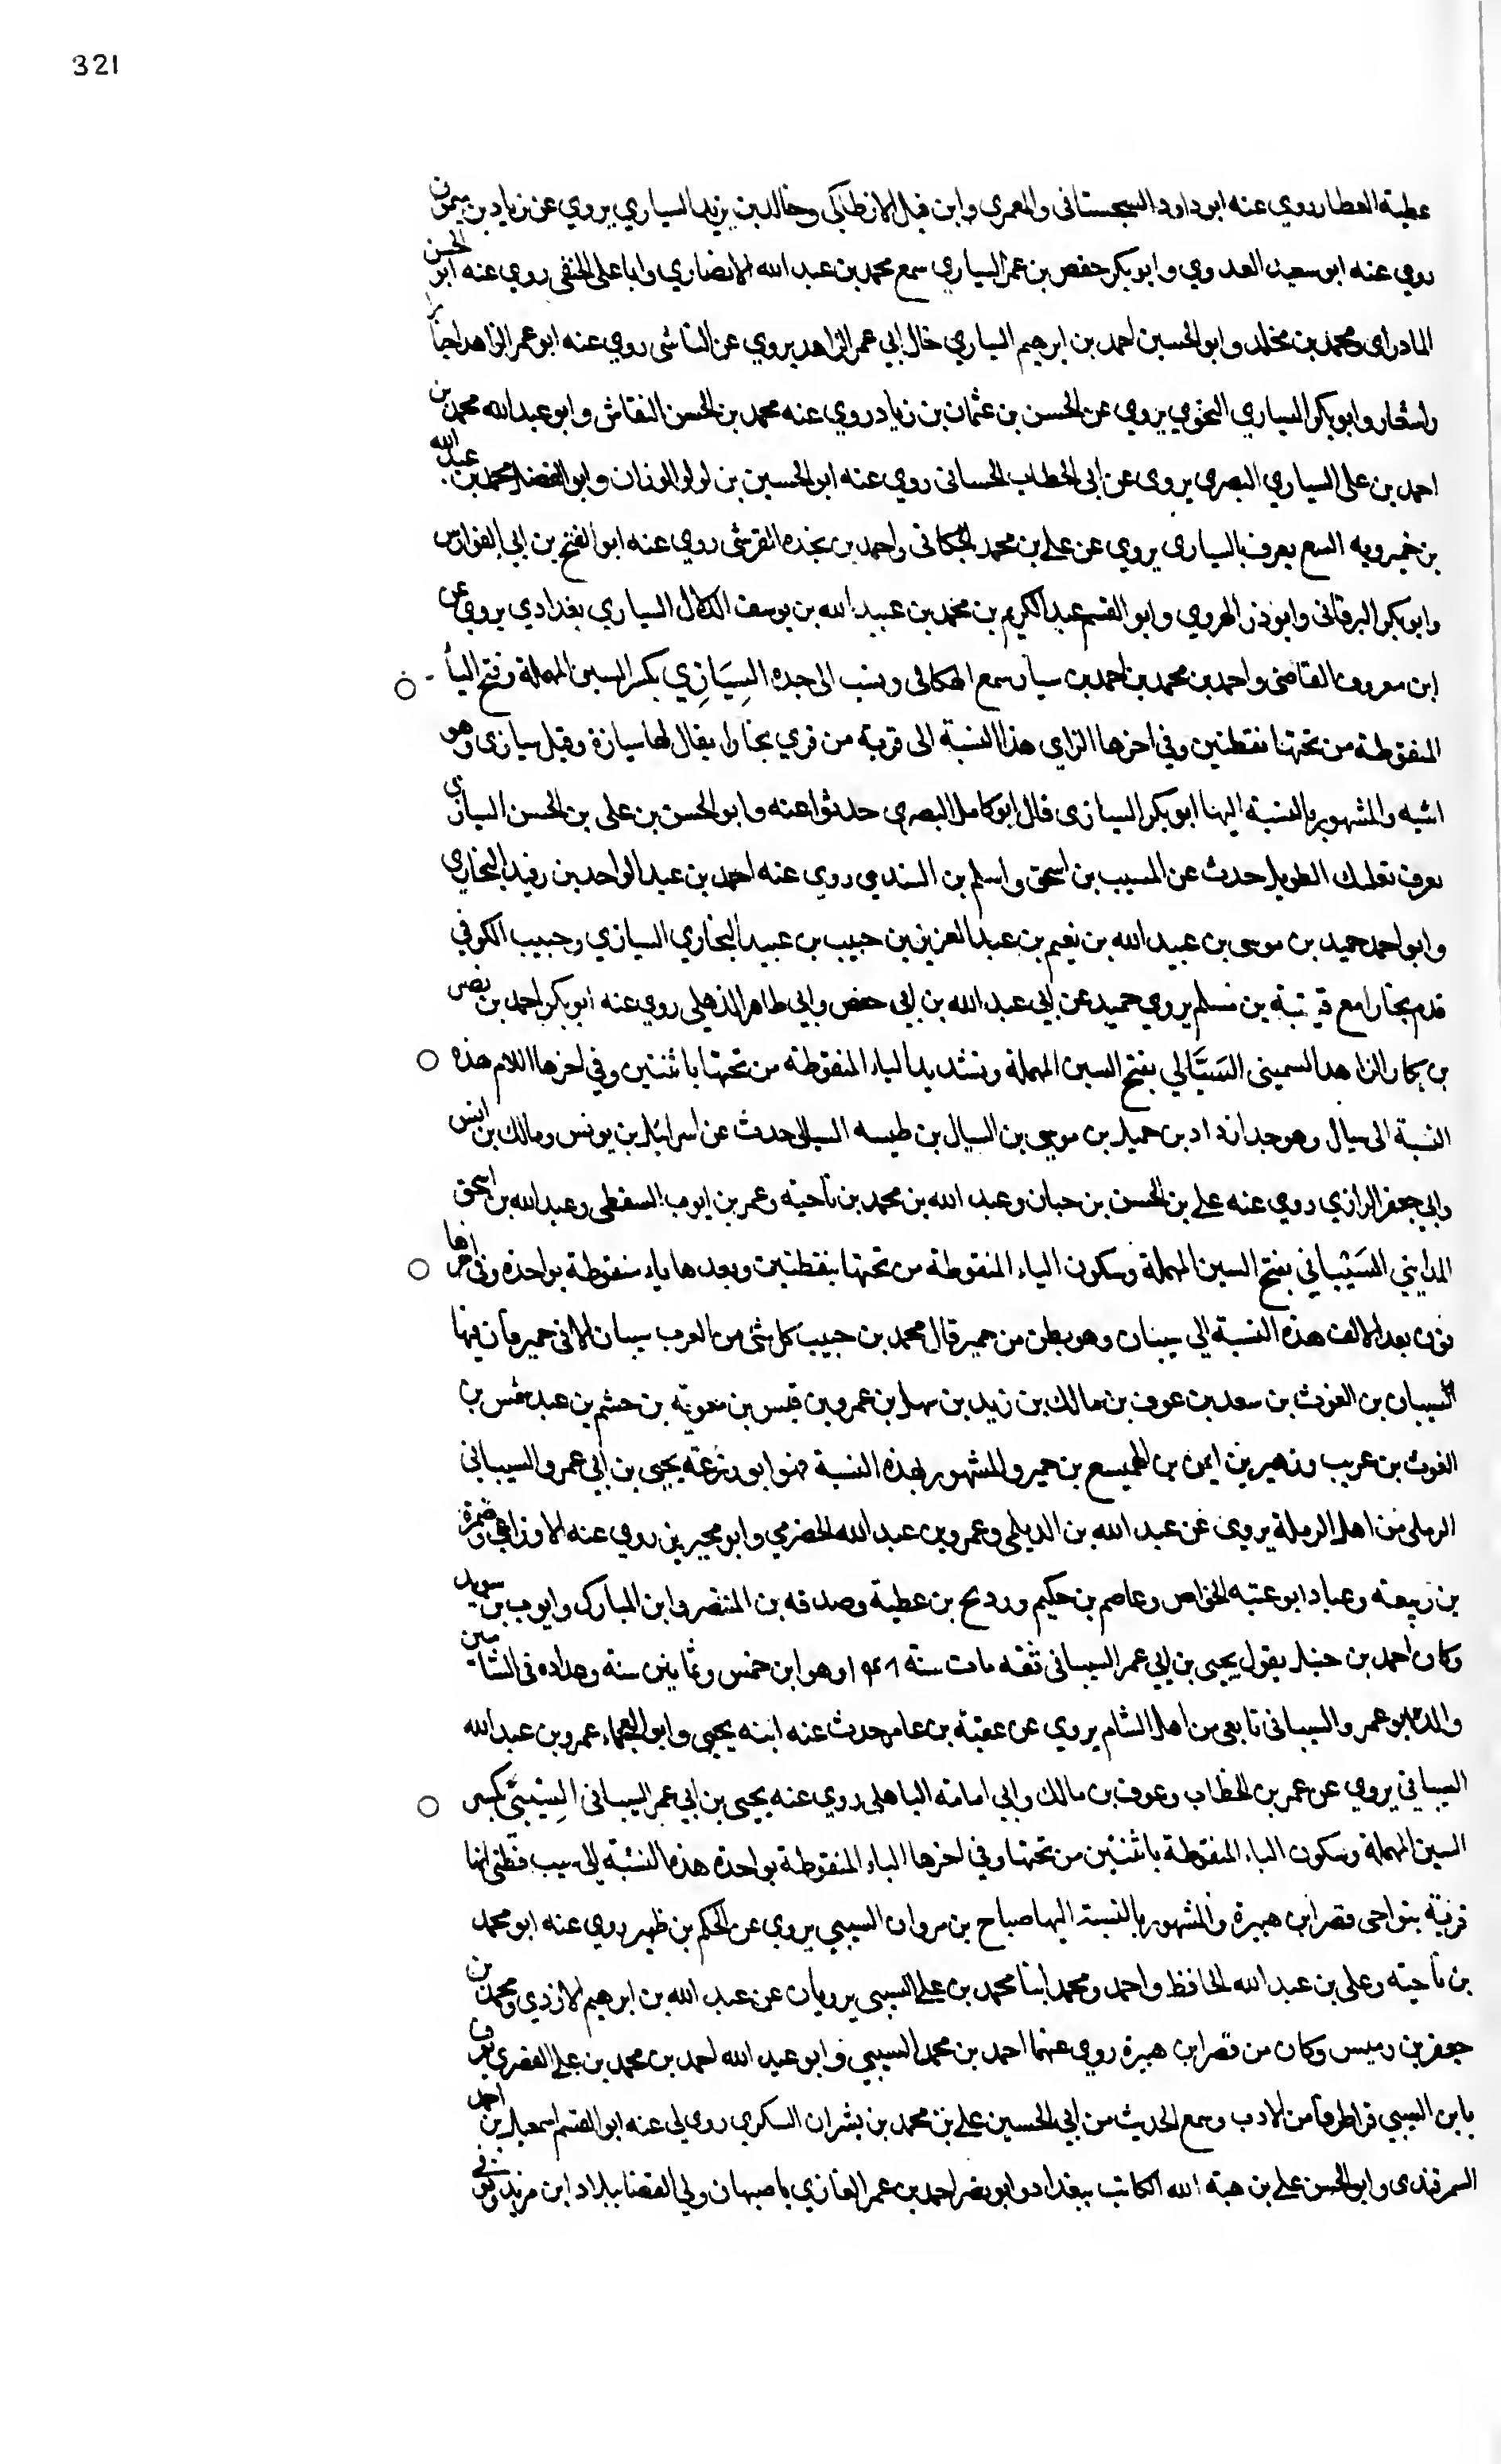 321
عطية العطار روي عنه ابو داود السجستاني والمعمري وابن فيل الانطاكي وخالد بن يزيد السياري يروي عن زياد بن ميمون
روي عنه ابو سعيد العدوي وابو بكر حفص بن عمر السياري سمع محمد بن عبد الله الانصاري وابا علي الحنفي روي عنه ابو الحسن
المادراي ومحمد بن مخلد وابو الحسين احمد بن ابرهيم السياري خال ابي عمر الزاهد يروي عن الناشي روي عنه ابو عمر الزاهد اخبارا
واشعار وابو بكر السياري النحوي يروي عن الحسن بن عثمان بن زياد روي عنه محمد بن الحسن النقاش وابو عبد الله محمد بن
احمد بن علي السياري البصري يروي عن ابي الخطاب الحساني روي عنه ابو الحسين بن لولو الوزان وابو الفضل محمد بن عبد الله
بن خميرويه يعرف بالسياري يروي عن علي بن محمد الجكاني واحمد بن نجده القرشي روي عنه ابو الفتح بن ابي الفوارس
وابو بكر البرقاني وابو ذر الهروي وابو القسم عبد الكريم بن محمد بن عبيد الله بن يوسف الدلال السياري بغدادي يروي عن
ابن معروف القاضي واحمد بن محمد بن احمد بن سيار سمع ونسب الى جده السِيَازِي بكسر السين المهملة وفتح اليا
المنقوطة من تحتها نقطتين وفي اخرها الزاي هذا النسبة الى قرية من قري بخارا يقال لها سيازة وقيل سيازى وهو
اشبه والمشهور بالنسبة اليها ابو بكر السيازى قال ابو كامل البصري حدثوا عنه وابو الحسن بن علي بن الحسن السيازي
يعرف الطويل حدث عن المسيب بن اسحق واسلم بن السندي روي عنه احمد بن عبد الواحد بن رفيد البخاري
وابو احمد حميد بن موسى بن عبيد الله بن نعيم بن عبد العزيز بن حبيب بن عبيد البخاري السيازي وحبيب الكوفي
قدم بخارا مع قتيبة بن مسلم يروي حميد عن ابي عبد الله بن ابي حفص وابي طاهر الذهلي روي عنه ابو بكر احمد بن نصر
بن بكار الزاهد السميني السَيَّالي بفتح السين المهملة وتشديد الياء المنقوطة من تحتها باثنتين وفي اخرها اللام هذه
النسبة الى سيال وهو جد ازداد بن جميل بن موسى بن السيال بن طيسه السيالي حدث عن اسرائيل بن يونس ومالك بن انس
وابي جعفر الرازي روي عنه علي بن الحسن بن حبان وعبد الله بن محمد بن ناجية وعمر بن ايوب السقطي وعبد الله بن اسحق
المدايني السَيْباني بفتح السين المهملة وسكون الياء المنقوطة من تحتها بنقطتين وبعدها باء منقوطة بواحدة وفي اخرها
نون بعد الالف هذه النسبة الي سيبان وهو بطن من حمير قال محمد بن حبيب كل شي من العرب سيبان الا في حمير فان فيها
السيبان بن الغوث بن سعد بن عوف بن مالك بن زيد بن سهل بن عمرو بن قيس بن معوية بن جشم بن عبد شمس بن
الغوث بن عريب وزهير بن ايمن بن الهميسع بن حمير والمشهور بهذه النسبة هو ابو زرعة يحيى بن ابي عمرو السيباني
الرملي من اهل الرملة يروي عن عبد الله بن الديلمي وعمرو بن عبد الله الحضرمي وابو محيريز روي عنه الاوزاعي وضمرة
بن ربيعة وعباد ابو عتبه الخواص وعاصم بن حكيم ورديح بن عطية وصدقه بن المنتصر وابن المبارك وايوب بن سويد
وكان احمد بن حنبل يقول يحيى بن ابي عمر السيباني ثقة مات سنة وهو ابن خمس وثمانين سنة وعداده في الشاميين
والده ابو عمرو السيباني تابعي من اهل الشام يروي عن عقبة بن عامر حدث عنه ابنه يحيى وابو العجماء عمرو بن عبد الله
السيباني يروي عن عمر بن الخطاب وعوف بن مالك وابي امامة الباهلي روي عنه يحيى بن ابي عمر السيباني السِيْبيّ بكسر
السين المهملة وسكون الياء المنقوطة باثنتين من تحتها وفي اخرها الباء المنقوطة بواحدة هذه النسبة الي سيب فظني انها
قرية بنواحي قصر ابن هبيرة والمشهور بالنسبة اليها صباح بن مروان السيبي يروي عن الحكم بن ظهير روي عنه ابو محمد
بن ناجية وعلي بن عبد الله الحافظ واحمد ومحمد ابنا محمد بن علي السيبي يرويان عن عبد الله بن ابرهيم الازدي ومحمد بن
جعفر بن رميس وكان من قصر ابن هبيرة روي عنهما احمد بن محمد السيبي وابو عبد الله احمد بن محمد بن علي القصري يعرف
بابن السيبي قرا طرفا من الادب وسمع الحديث من ابي الحسين علي بن محمد بن بشران السكري روي لي عنه ابو القسم اسمعيل بن احمد
السمرقندى وابو الحسن علي بن هبة الله الكاتب ببغداد وابو نصر احمد بن عمر الغازي باصبهان ولي القضا ببلاد ابن مزيد وتوفي